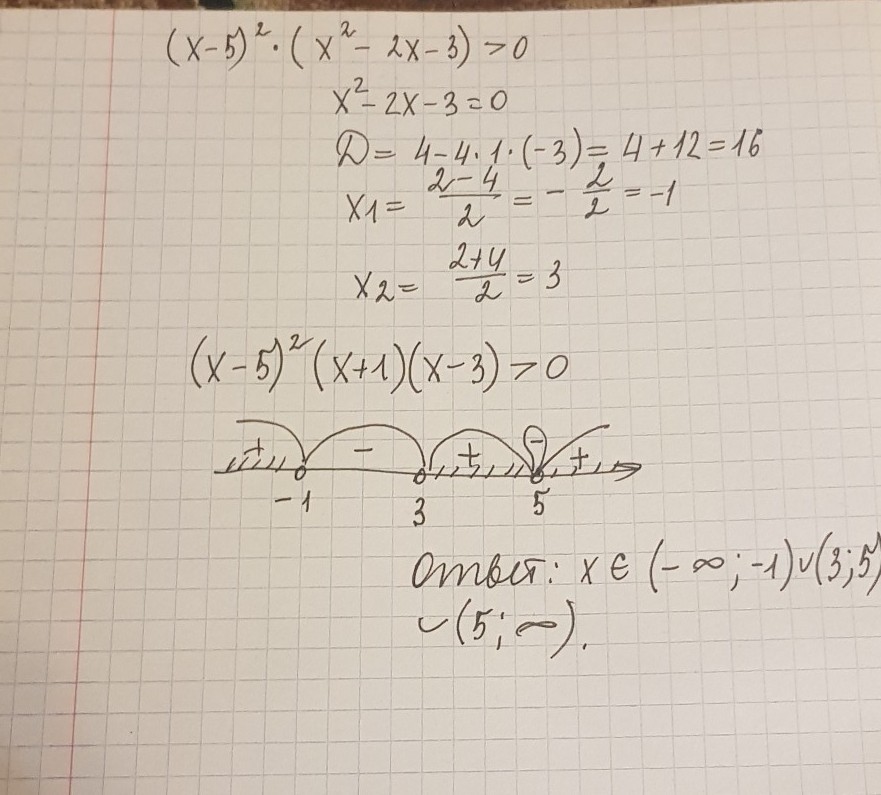 (x-5)²·(x²-2x-3)>0
x²-2x-3=0
D=4-4·1·(-3)=4+12=16
x1=\frac{2-4}{2}=-\frac{2}{2}=-1
x2=\frac{2+4}{2}=3
(x-5)²(x+1)(x-3)>0
+ - + - +
-1 3 5
Ответ: x∈(-∞;-1)∪(3;5)
∪(5;∞).